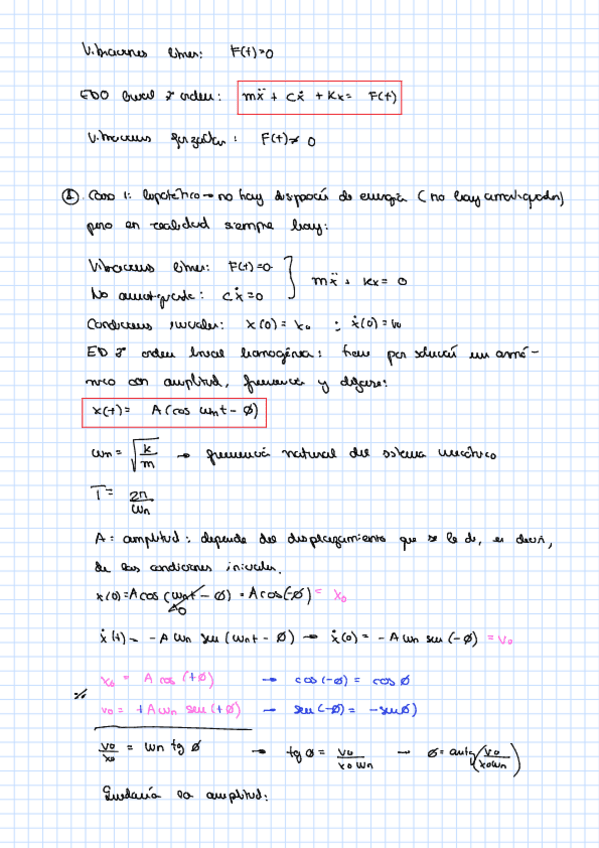 Vibraciones libres: F(t)=0
EDO lineal 2º orden: mẍ + cẋ + Kx = F(t)
Vibraciones forzadas: F(t)≠ 0
① Caso 1: hipotético → no hay disipación de energía (no hay amortiguador)
pero en realidad siempre hay:
Vibraciones libres: F(t)=0
No amortiguada: cẋ=0 } mẍ + Kx = 0
Condiciones iniciales: x(0) = x₀ ; ẋ(0) = v₀
ED 2º orden lineal homogénea: tiene por solución un armó-
nico con amplitud, frecuencia y desfase:
x(t) = A(cos ωnt - ϕ)
ωn = √(k/m) → frecuencia natural del sistema mecánico
T = 2π/ωn
A = amplitud: depende del desplazamiento que se le dé, es decir,
de las condiciones iniciales.
x(0)=A cos (ωnt - ϕ) = A cos(-ϕ) = x₀
→0
ẋ(t) = -A ωn sen (ωnt - ϕ) → ẋ(0) = -A ωn sen (-ϕ) = v₀
x₀ = A cos (+ϕ) → cos(-ϕ) = cos ϕ
v₀ = +A ωn sen (+ϕ) → sen(-ϕ) = -senϕ)
v₀/x₀ = ωn tg ϕ → tg ϕ = v₀/x₀ωn → ϕ = arctg(v₀/x₀ωn)
Quedaría la amplitud: